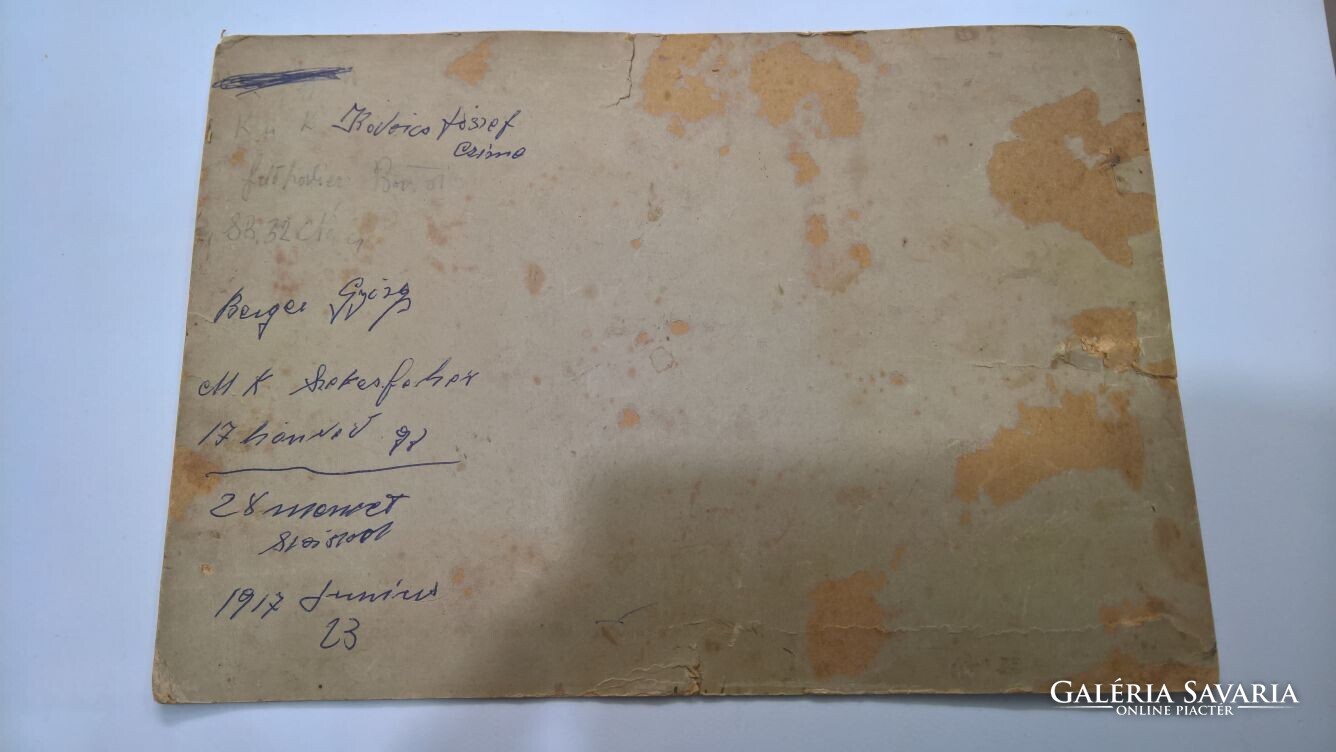 K u K Kovács József
czime
88. 32
Berger György
M K Szekesfeher
17 honvéd gy
28 menet
század
1917 Junius
23
GALÉRIA SAVARIA
ONLINE PIACTÉR